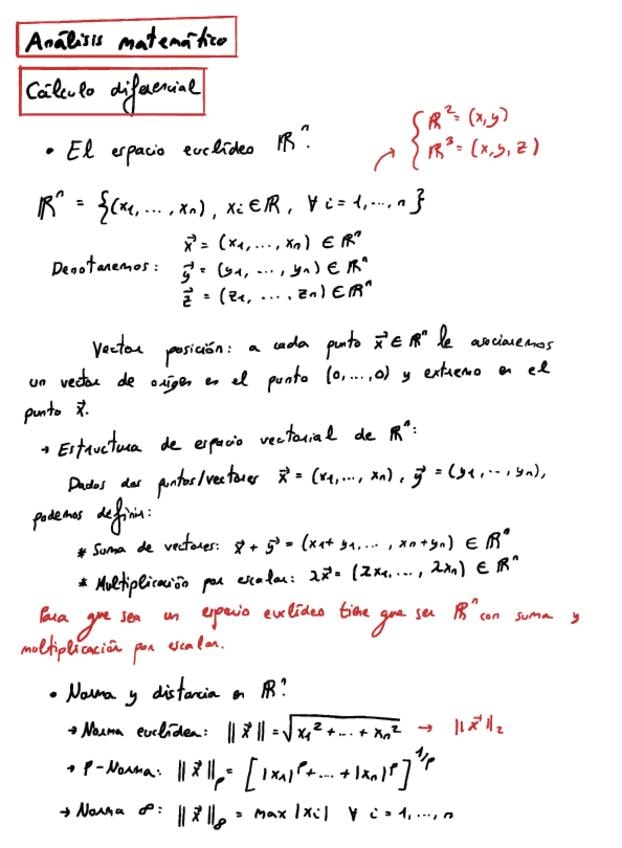 Análisis matemático
Cálculo diferencial
• El espacio euclídeo ℝⁿ.
{ ℝ² = (x,y)
ℝ³ = (x,y,z)
ℝⁿ = {(x₁,...,xₙ), xᵢ ∈ ℝ, ∀ i = 1,...,n}
x⃗ = (x₁,...,xₙ) ∈ ℝⁿ
Denotaremos: y⃗ = (y₁,...,yₙ) ∈ ℝⁿ
z⃗ = (z₁,...,zₙ) ∈ ℝⁿ
Vector posición: a cada punto x⃗ ∈ ℝⁿ le asociaremos
un vector de origen en el punto (0,...,0) y extremo en el
punto x⃗.
→ Estructura de espacio vectorial de ℝⁿ:
Dados dos puntos/vectores x⃗ = (x₁,...,xₙ), y⃗ = (y₁,...,yₙ),
podemos definir:
* Suma de vectores: x⃗ + y⃗ = (x₁+y₁,...,xₙ+yₙ) ∈ ℝⁿ
* Multiplicación por escalar: λx⃗ = (λx₁,...,λxₙ) ∈ ℝⁿ
Para que sea un espacio euclídeo tiene que ser ℝⁿ con suma y
multiplicación por escalar.
• Norma y distancia en ℝⁿ.
→ Norma euclídea: ||x⃗|| = √(x₁²+...+xₙ²) → ||x⃗||₂
→ P-Norma: ||x⃗||ₚ = [|x₁|ᵖ+...+|xₙ|ᵖ]^(1/p)
→ Norma ∞: ||x⃗||∞ = max |xᵢ| ∀ i = 1,...,n